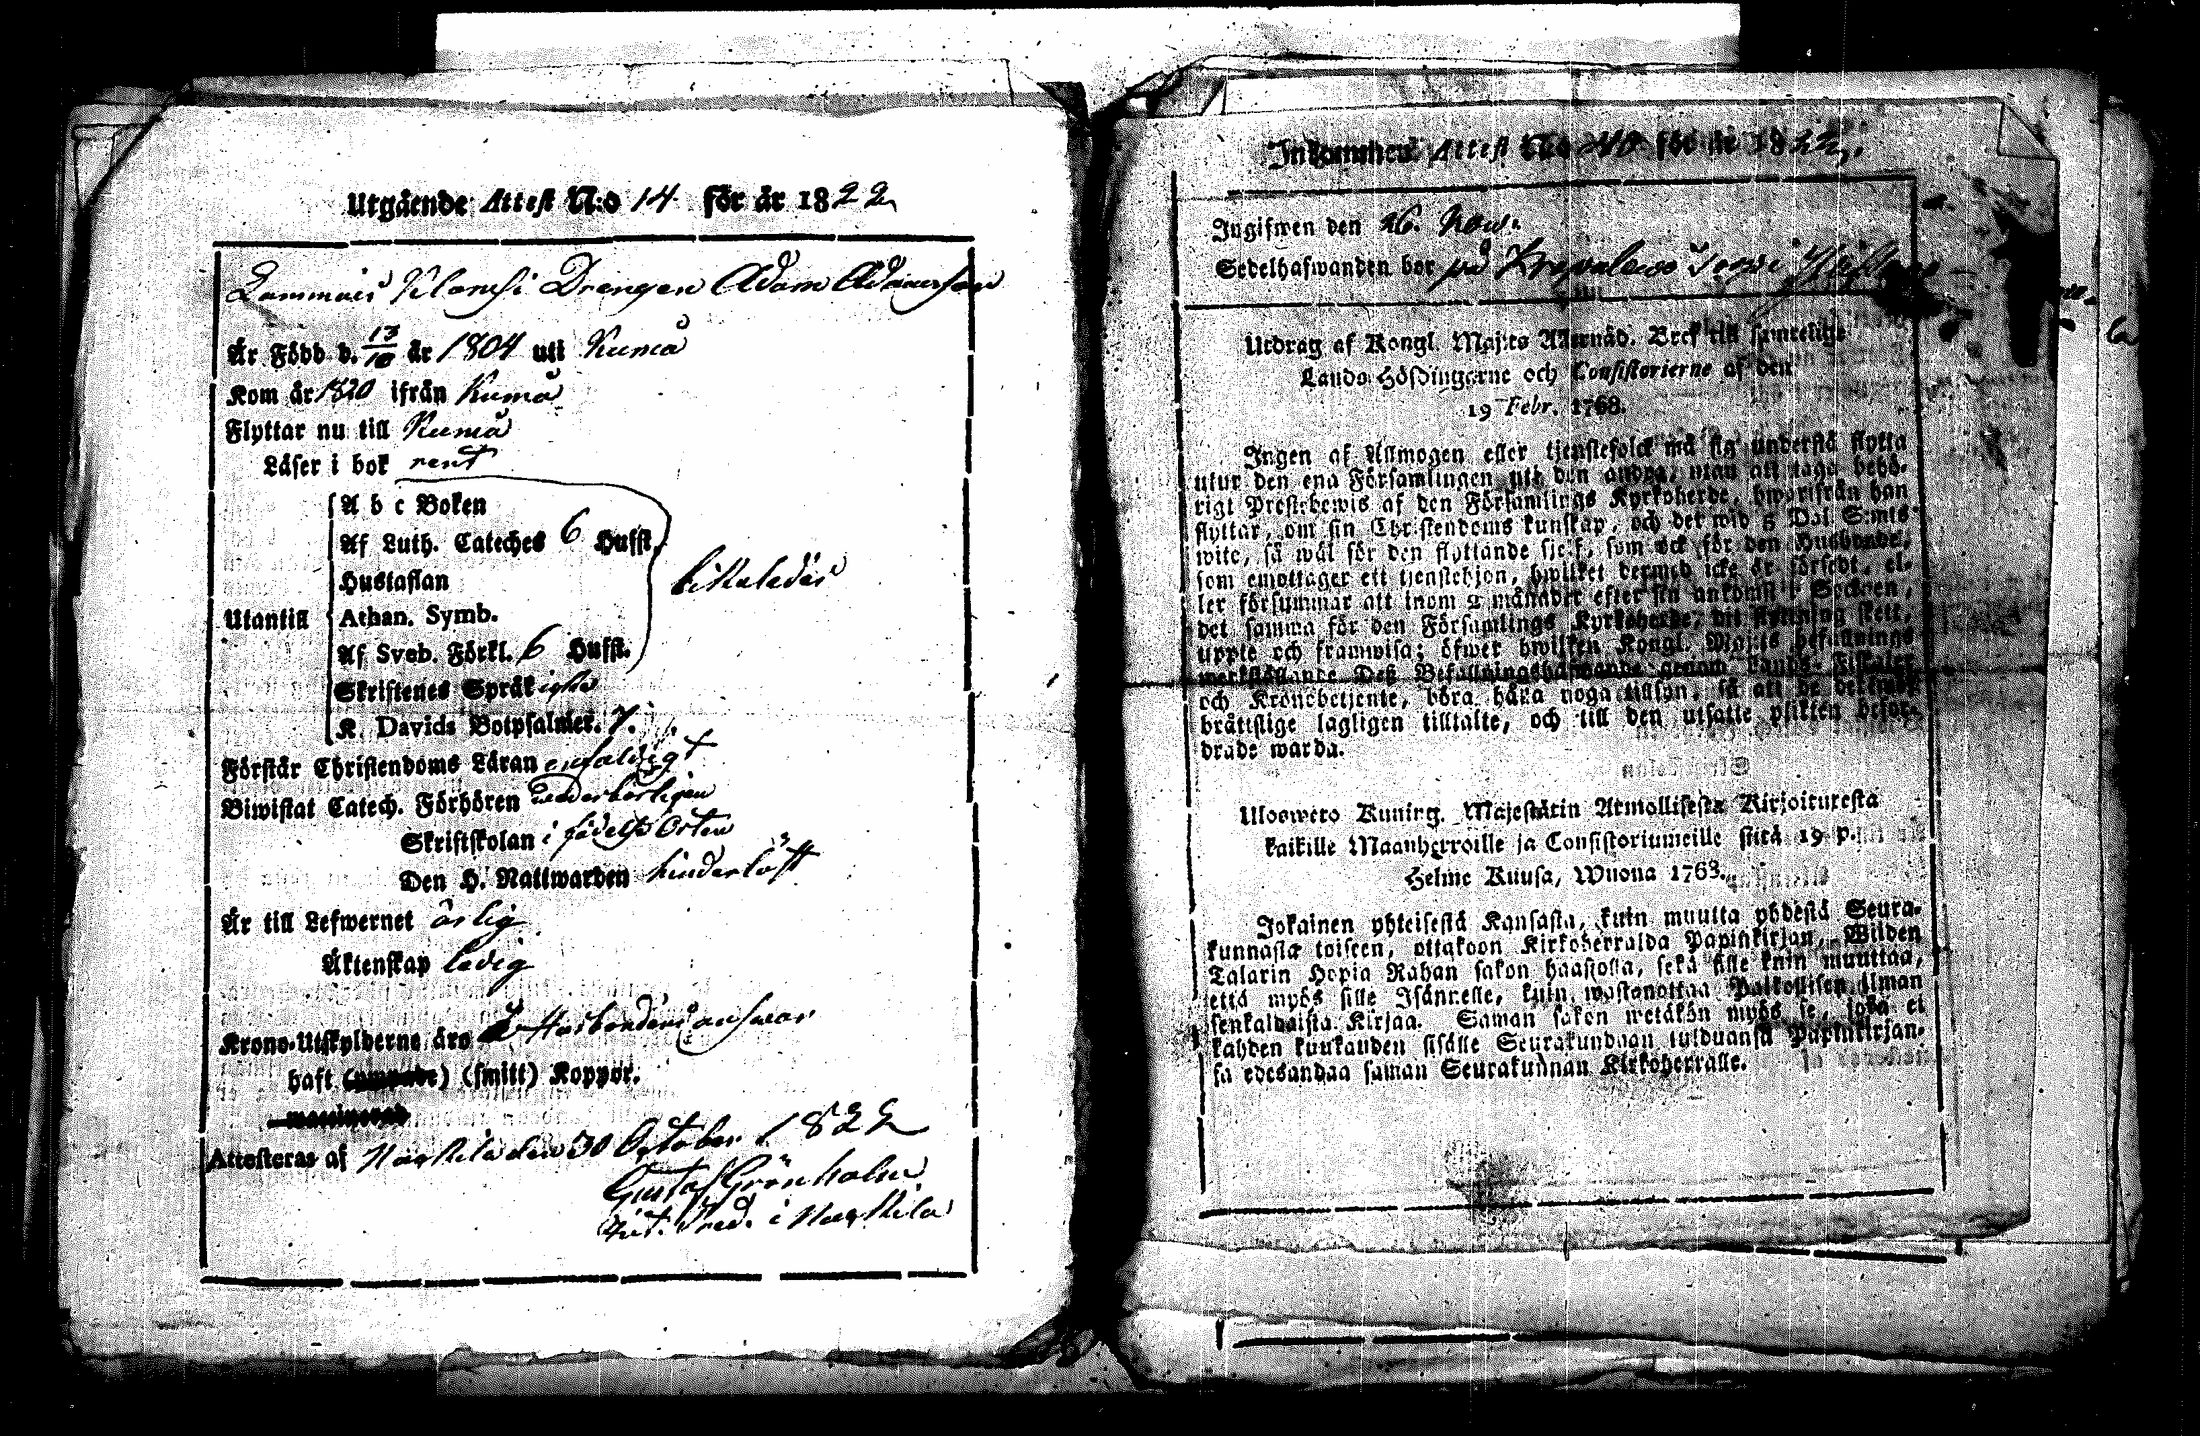 Utgående Attest N:o 14 för år 1822
Drengen Adam Adamsson
Är Född d. 13/10 år 1804 uti Kumo
Kom år 1820 ifrån Kumo
Flyttar nu till Kumo
Läser i bok rent
A b c Boken
Af Luth. Cateches 6 Hufst.
Hustaflan
likaledes
Utantill Athan. Symb.
Af Sveb. Förkl. 6 Hufst.
Skriftenes Språk
K. Davids Botpsalmer. 7.
Förstår Christendoms Läran enfaldigt
Biwistat Catech. Förhören
Skriftskolan i födelse Orten
Den H. Nattwarden hinderlöst
Är till Lefwernet ärlig
Äktenskap ledig
Krono-Utskylderne äro Husbondens answar
haft (smitt) Koppor.
Attesteras af den 30 October 1822
Gustaf Grönholm
i
Inkommen Attest N:o 40 för år 1822.
Ingifwen den 26. Now.
Sedelhafwanden bor på
Utdrag af Kongl. Maj:ts Allernåd. Bref till samtelige
Lands Höfdingarne och Consistorierne af den
19 Febr. 1768.
Ingen af Allmogen eller tjenstefolck må sig understå flytta
utur den ena Församlingen uti den andra, utan att taga behö-
rigt Prestebewis af den Församlings Kyrkoherde, hwarifrån han
flyttar, om sin Christendoms kunskap, och det wid 5 Dal. S:mts
wite, så wäl för den flyttande sjelf, som ock för den Husbonde,
som emottager ett tjenstehjon, hwilket dermed icke är försedt, el-
ler försummar att inom 2 månader efter sin ankomst i Socknen,
det samma för den Församlings Kyrkoherde, dit flyttning skett,
uppte och framwisa; öfwer hwilken Kongl. Maj:ts befallnings
werkställande Deß Befallningshafwande genom Lands-Fiskaler
och Kronobetjente, böra hafwa noga tillsyn, så att de
brättslige lagligen tilltalte, och till den utsatte plikten befor-
drade warda.
Uloswero Kuning. Majestätin Armollisesta Kirjoituresta
kaikille Maanherroille ja Consistoriumeille siitä 19 p.
Helme Kuusa, Wuona 1763.
Jokainen yhteisestä Kansasta, kuin muutta yhdestä Seura-
kunnasta toiseen, ottakoon Kirkoherralda Papinkirjan, Wiiden
Talarin Hopia Rahan sakon haastolla, sekä sille kuin muuttaa,
että myös sille Isännelle, kuin wastanottaa Palkollisen ilman
senkaldaista Kirjaa. Saman sakon wetäkön myös se, joka ei
kahden kuukauden sisälle Seurakundaan tulduansa Papinkirjan-
sa edesandaa saman Seurakunnan Kirkoherralle.